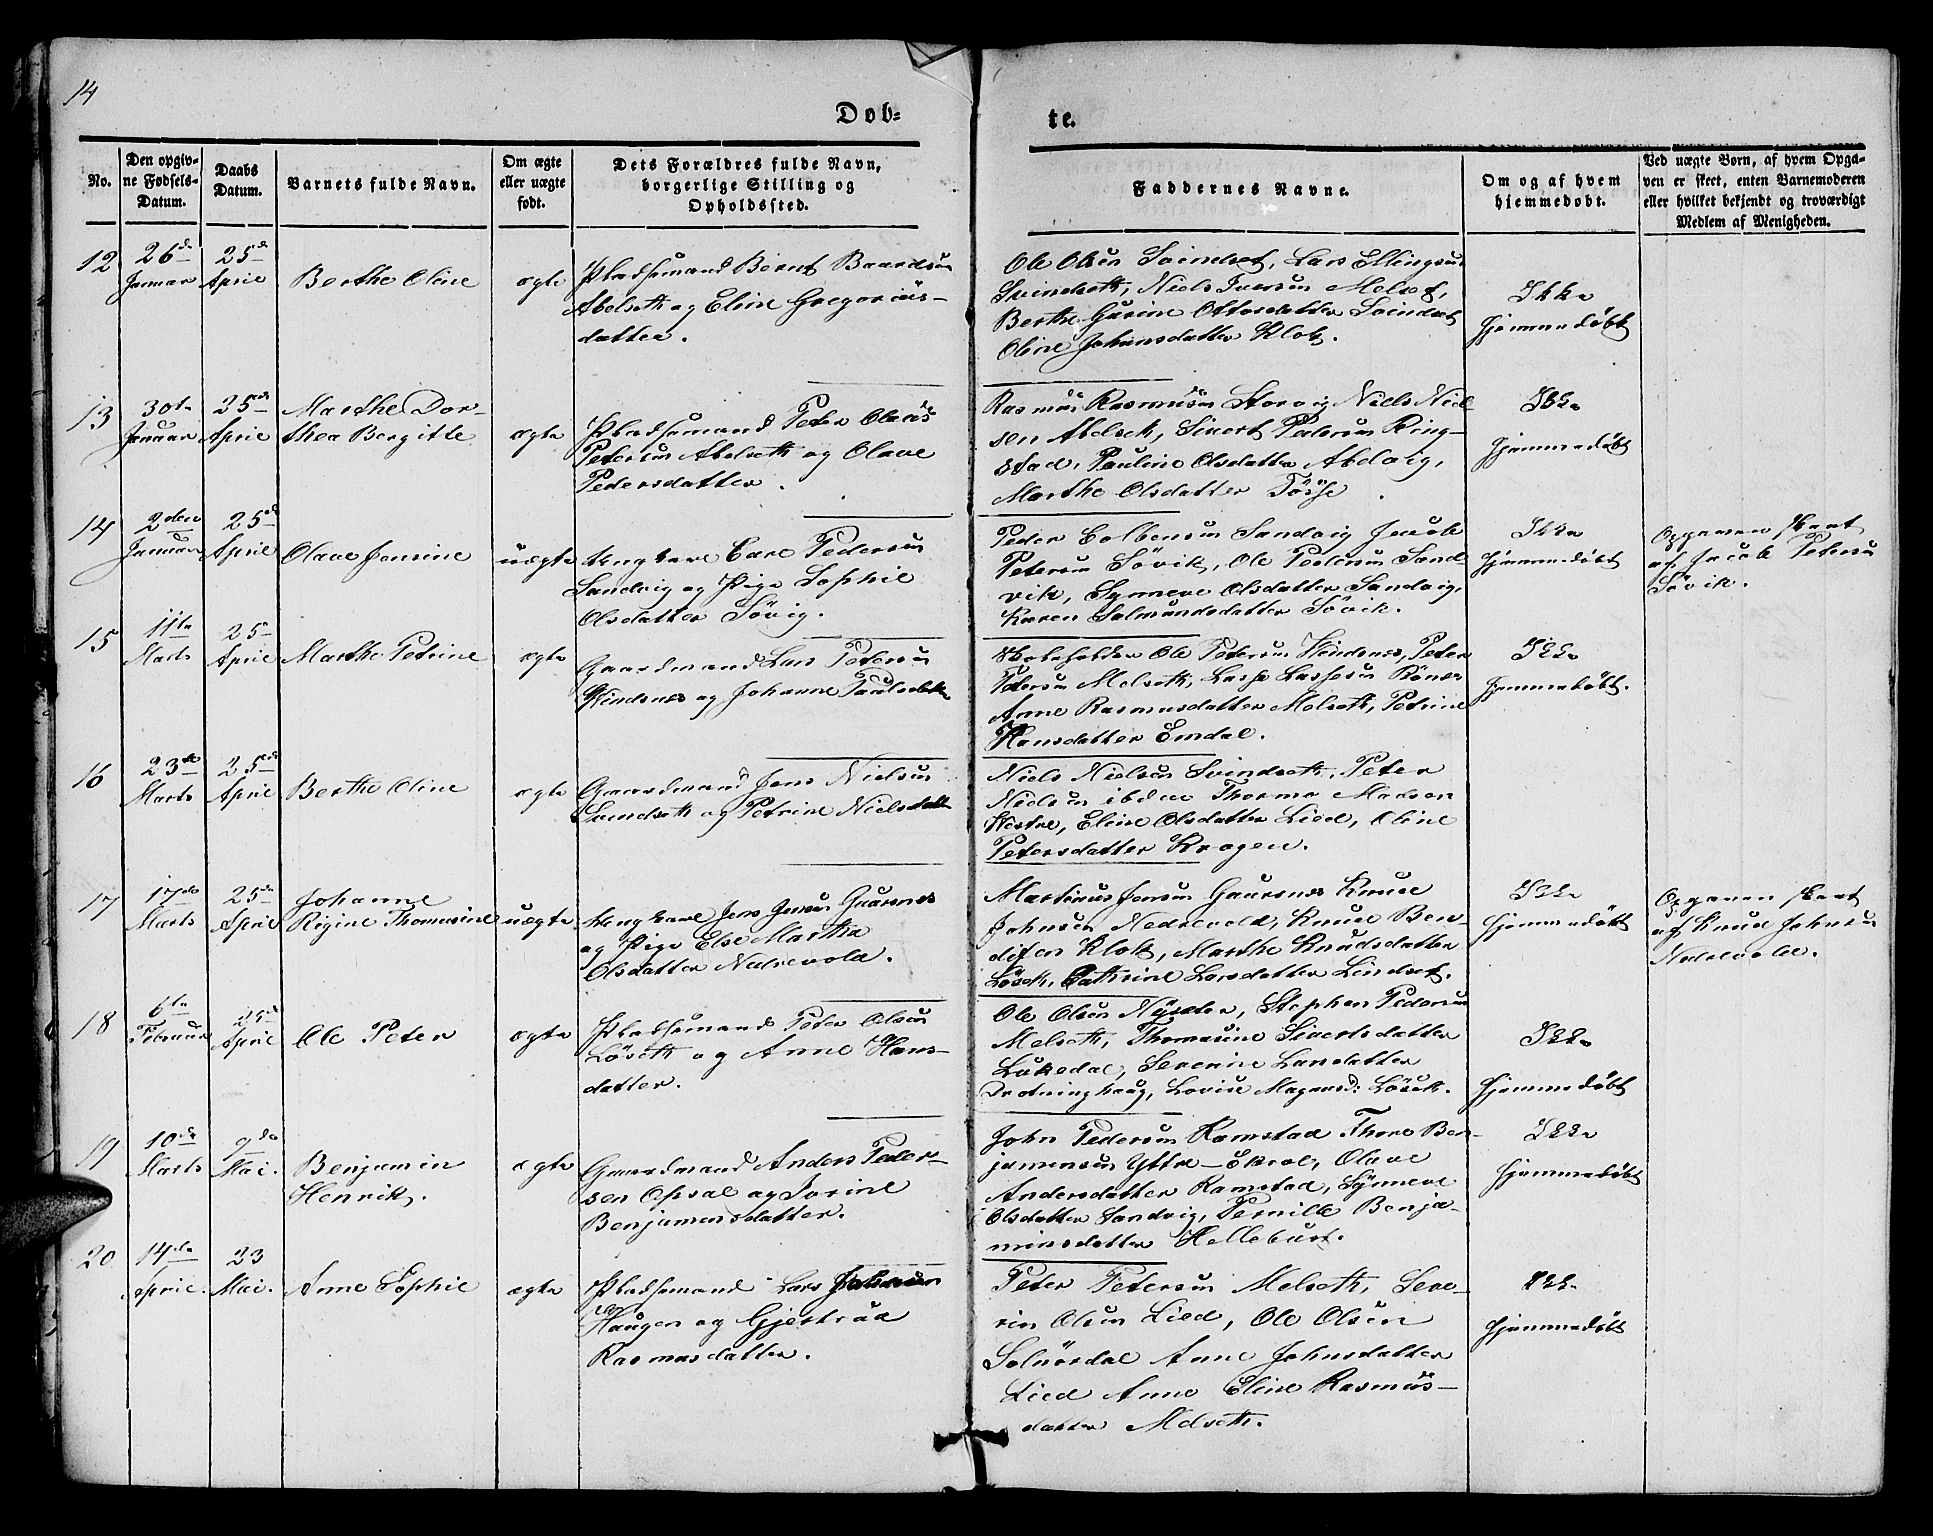 14
Døb=
te.
No.
Den opgiv-
ne Fødsels-
Datum.
Daabs
Datum.
Barnets fulde Navn.
Om ægte
eller uægte
født.
Dets Forældres fulde Navn,
borgerlige Stilling og
Opholdssted.
Faddernes Navne.
Om og af hvem
hjemmedøbt.
Ved uægte Børn, af hvem Opga-
ven er skeet, enten Barnemoderen
eller hvilket bekjendt og troværdigt
Medlem af Menigheden.
12
26de
Januar
25de
April
Berthe Oline
ægte
Pladsemand Bernt Baardsen
Abelseth og Eline Gregorius-
datter.
Ole Olsen Svindset, Lars Ellingsen
Svindseth, Niels Iversen Melset,
Berthe Gurine Ottosdatter Svindset
Oline Johansdatter Klok.
Ikke
hjemmedøbt
13
30te
Januar
25de
April
Marthe Dor-
thea Bergitte
ægte
Pladsemand Peter Olaus
Petersen Abelseth og Olave
Pedersdatter.
Rasmus Rasmusen Storvig Niels Niel
sen Abelset, Sivert Pedersen Ring-
stad, Pauline Olsdatter Abelvig,
Marthe Olsdatter Tösse.
Ikke
hjemmedøbt
14
2den
Januar
25de
April
Olave Jensine
uægte
Ungkarl Carl Pedersen
Sandvig og Pige Sophie
Olsdatter Sövig.
Peder Colbensen Sandvig Jacob
Petersen Sövik, Ole Pedersen Sand
vik, Synneve Olsdatter Sandvig,
Karen Salmundsdatter Sövik.
Ikke
hjemmedøbt
Opgaven skeet
af Jacob Petersen
Sövik.
15
11te
Marts
25
April
Marthe Petrine
ægte
Gaardmand Lars Petersen
Vindsnes og Johanne Paulsdatter
Skoleholder Ole Petersen Vindsnes, Peter
Petersen Melseth, Lasse Lassesen Rönes
Anne Rasmusdatter Melseth, Petrine
Hansdatter Emdal.
Ikke
hjemmedøbt.
16
23de
Marts
25de
April
Berthe Oline
ægte
Gaardmand Jens Nielsen
Svindseth og Petrine Nielsdatt
Niels Nielsen Svindseth, Peter
Nielsen ibdm Thormo Madsen
Vestre, Eline Olsdatter Lied, Oline
Petersdatter Krogen.
17
17de
Marts
25de
April
Johanne
Rigine Thomasine
uægte
Ungkarl Jens Jensen Gaarsnes
og Pige Else Martha
Olsdatter Nedrevold.
Martinus Jensen Gaarsnes Knud
Johnsen Nedrevold, Knud Ben-
diksen Klok, Marthe Knudsdatter
Löset, Cathrine Larsdatter Lindset.
Ikke
hjemmedøbt
Opgaven skeet
af Knud Johnsen
Nedrevold.
18
6te
Februar
25de
April
Ole Peter
ægte
Pladsemand Peter Olsen
Löseth og Anne Hans-
datter.
Ole Olsen Nysæter, Stephen Pedersen
Melseth, Thomasine Sivertsdatter
Lukedal, Severine Larsdatter
Drotninghaug, Lovise Magnusd: Löset.
Ikke
hjemmedøbt
19
10de
Marts
9de
Mai.
Benjamin
Henrik.
ægte
Gaardmand Anders Peder-
sen Opsal og Jorine
Benjaminsdatter.
John Pedersen Ramstad Thore Ben-
jaminsen Yttre-Ekrol, Olave
Andersdatter Ramstad, Synneve
Olsdatter Sandvig, Pernille Benja-
minsdatter Hellebust.
Ikke
hjemmedøbt
20
14de
April.
23
Mai.
Anne Sophie
ægte
Pladsemand Lars Johnsen
Haugen og Gjertrud
Rasmusdatter.
Peter Petersen Melseth, Seve-
rin Olsen Lied, Ole Olsen
Solnördal Anne Johnsdatter
Lied Anne Eline Rasmus-
datter Melseth.
Ikke
hjemmedøbt